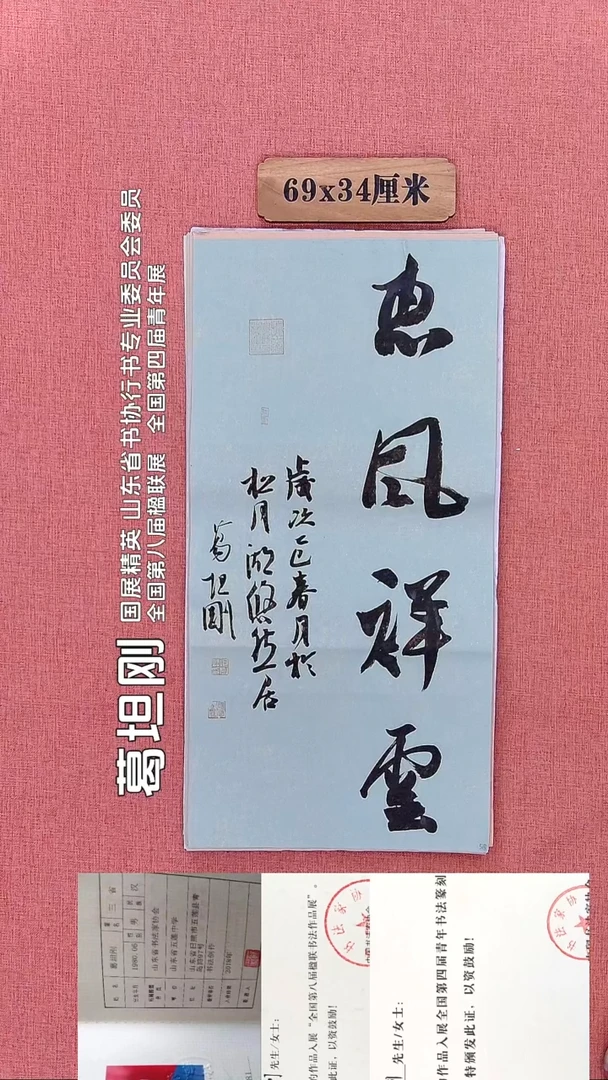 69x34厘米
惠风祥雲
歲次乙巳春月於
松月湖悠然居
葛坦剛
葛坦刚
国展精英 山东省书协行书专业委员会委员
全国第八届楹联展 全国第四届青年展
山东省书法家协会
山东省五莲中学
先生/女士：
的作品入展“全国第八届楹联书法作品展”。
此证，以资鼓励！
先生/女士：
作品入展全国第四届青年书法篆刻
特颁发此证，以资鼓励！